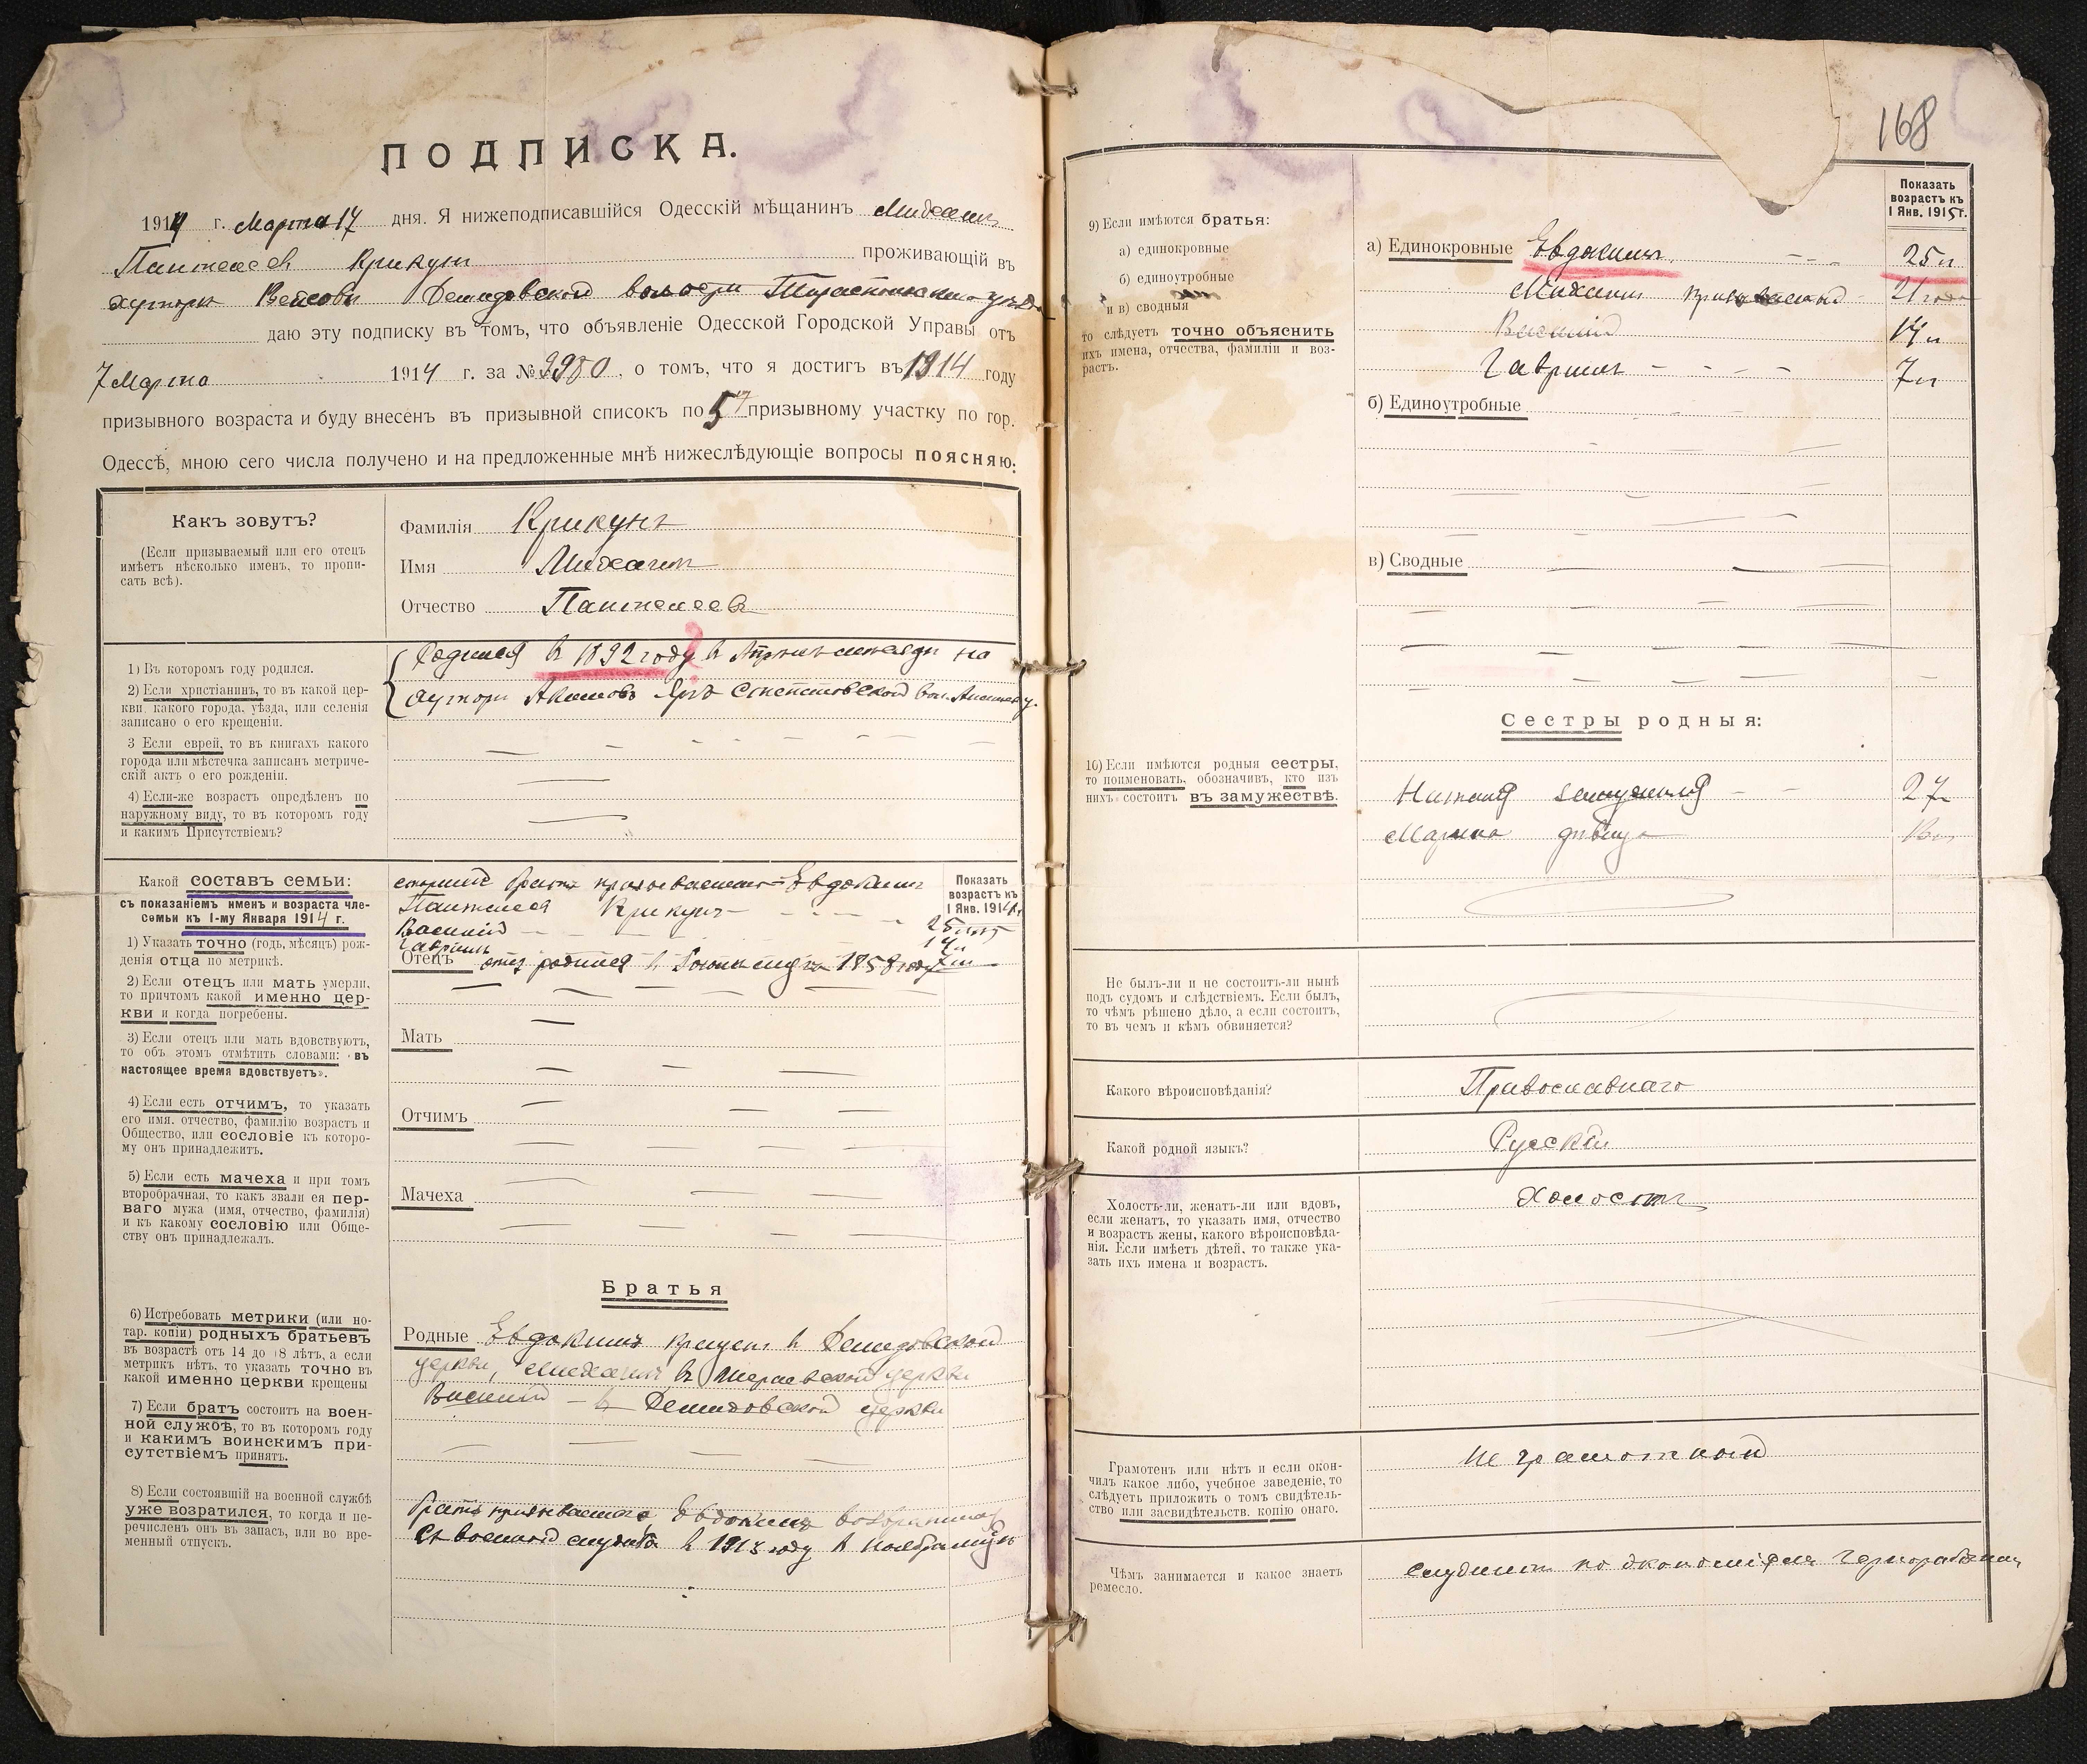 ПОДПИСКА.
1914 г. Марта 17 дня. Я нижеподписавшійся Одесскій мѣщанинъ Михаилъ
Пантелеев Крикунъ проживающій въ
хуторѣ Демидовской волости Тираспольскаго уѣзда
даю эту подписку въ томъ, что объявленіе Одесской Городской Управы отъ
7 Марта 1914 г. за № 9980, о томъ, что я достигъ въ 1914 году
призывного возраста и буду внесенъ въ призывной списокъ по 5 призывному участку по гор.
Одессѣ, мною сего числа получено и на предложенные мнѣ нижеслѣдующіе вопросы поясняю:
Какъ зовутъ?
(Если призываемый или его отецъ
имѣетъ нѣсколько именъ, то пропи-
сать всѣ).
Фамилія Крикунъ
Имя Михаилъ
Отчество Пантелеев
1) Въ которомъ году родился.
2) Если христіанинъ, то въ какой цер-
кви, какого города, уѣзда, или селенія
записано о его крещеніи.
3 Если еврей, то въ книгахъ какого
города или мѣстечка записанъ метриче-
скій актъ о его рожденіи.
4) Если-же возрастъ опредѣленъ по
наружному виду, то въ которомъ году
и какимъ Присутствіемъ?
Родился в 1892 году в
хуторѣ
Какой составъ семьи:
съ показаніемъ именъ и возраста чле-
семьи къ 1-му Января 1914 г.
1) Указать точно (годъ, мѣсяцъ) рож-
денія отца по метрикѣ.
2) Если отецъ или мать умерли,
то причтомъ какой именно цер-
кви и когда погребены.
3) Если отецъ или мать вдовствуютъ,
то объ этомъ отмѣтить словами: «въ
настоящее время вдовствуетъ».
4) Если есть отчимъ, то указать
его имя, отчество, фамилію возрастъ и
Общество, или сословіе къ которо-
му онъ принадлежитъ.
5) Если есть мачеха и при томъ
второбрачная, то какъ звали ея пер-
ваго мужа (имя, отчество, фамилія)
и къ какому сословію или Обще-
ству онъ принадлежалъ.
6) Истребовать метрики (или но-
тар. копіи) родныхъ братьевъ
въ возрастѣ отъ 14 до 18 лѣтъ, а если
метрикъ нѣтъ, то указать точно въ
какой именно церкви крещены
7) Если братъ состоитъ на воен-
ной службѣ, то въ которомъ году
и какимъ воинскимъ при-
сутствіемъ принятъ.
8) Если состоявшій на военной службѣ
уже возратился, то когда и пе-
речисленъ онъ въ запасъ, или во вре-
менный отпускъ.
Показать
возрастъ къ
1 Янв. 1914 г.
старший братъ призываемаго Евдокимъ
Пантелеев Крикунъ 25 лѣтъ
Василій 14 л
Гаврилъ 7 л
Отецъ отец родился в 1858 году
Мать
Отчимъ
Мачеха
Братья
Родные Евдокимъ крещен в Демидовской
церкви, Михаил в церкви
Василий – в Демидовской церкви
братъ призываемаго Евдокимъ возвратился
съ военной службы в 1913 году в Ноябрѣ
168
Показать
возрастъ къ
1 Янв. 1915 г.
9) Если имѣются братья:
а) единокровные
б) единоутробные
и в) сводныя
то слѣдуетъ точно объяснить
ихъ имена, отчества, фамиліи и воз-
растъ.
а) Единокровные Евдокимъ 25 л
Михаилъ призываемый 21 года
Василій 14 л
Гаврилъ 7 л
б) Единоутробные
в) Сводные
Сестры родныя:
10) Если имѣются родныя сестры,
то поименовать, обозначивъ, кто изъ
нихъ состоитъ въ замужествѣ.
Наталія замужняя 27
дѣвица
Не былъ-ли и не состоитъ-ли нынѣ
подъ судомъ и слѣдствіемъ. Если былъ,
то чѣмъ рѣшено дѣло, а если состоитъ,
то въ чемъ и кѣмъ обвиняется?
Какого вѣроисповѣданія?
Православнаго
Какой родной языкъ?
Русскій
Холостъ-ли, женатъ-ли или вдовъ,
если женатъ, то указать имя, отчество
и возрастъ жены, какого вѣроисповѣда-
нія. Если имѣетъ дѣтей, то также ука-
зать ихъ имена и возрастъ.
Холостъ
Грамотенъ или нѣтъ и если окон-
чилъ какое либо, учебное заведеніе, то
слѣдуетъ приложить о томъ свидѣтель-
ство или засвидѣтельств. копію онаго.
Не грамотный
Чѣмъ занимается и какое знаетъ
ремесло.
служит по экономіям